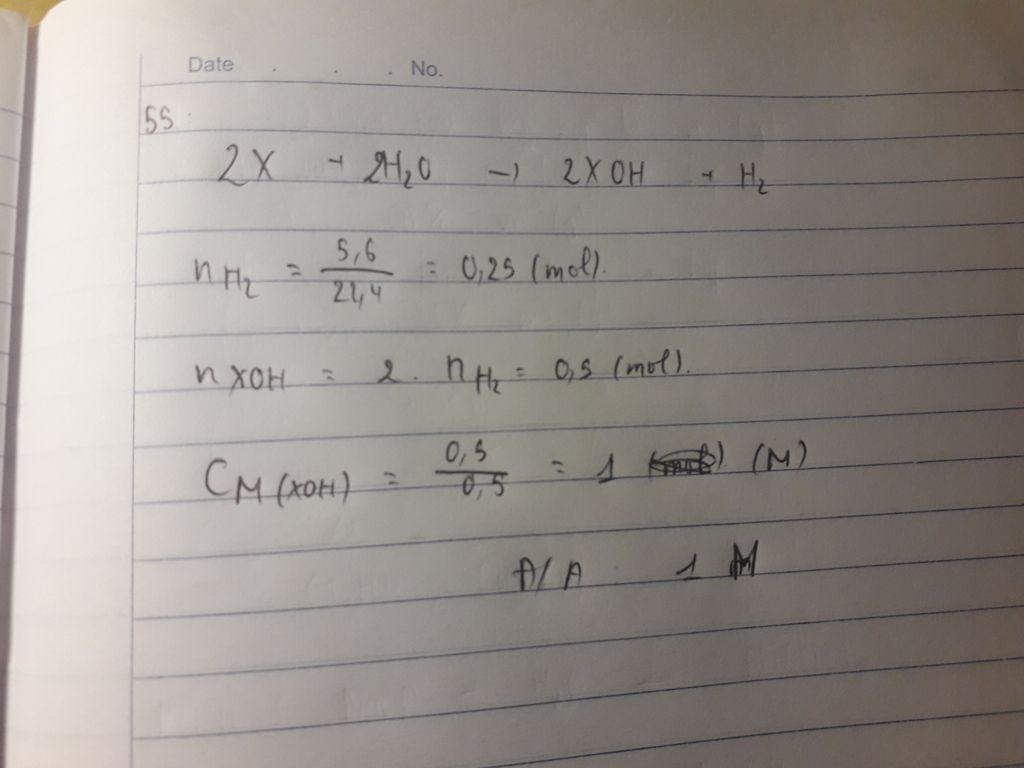 Date . . . No.
55.
2X + 2H₂O → 2XOH + H₂
nH₂ = 5,6/22,4 = 0,25 (mol).
nXOH = 2. nH₂ = 0,5 (mol).
CM(XOH) = 0,5/0,5 = 1 (M)
Đ/A 1 M